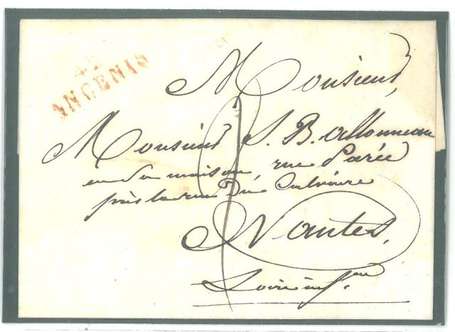 ANCENIS
Monsieur,
Monsieur J. B.
en sa maison, rue Parée
près la rue Du Calvaire
Nantes.
Loire infre.